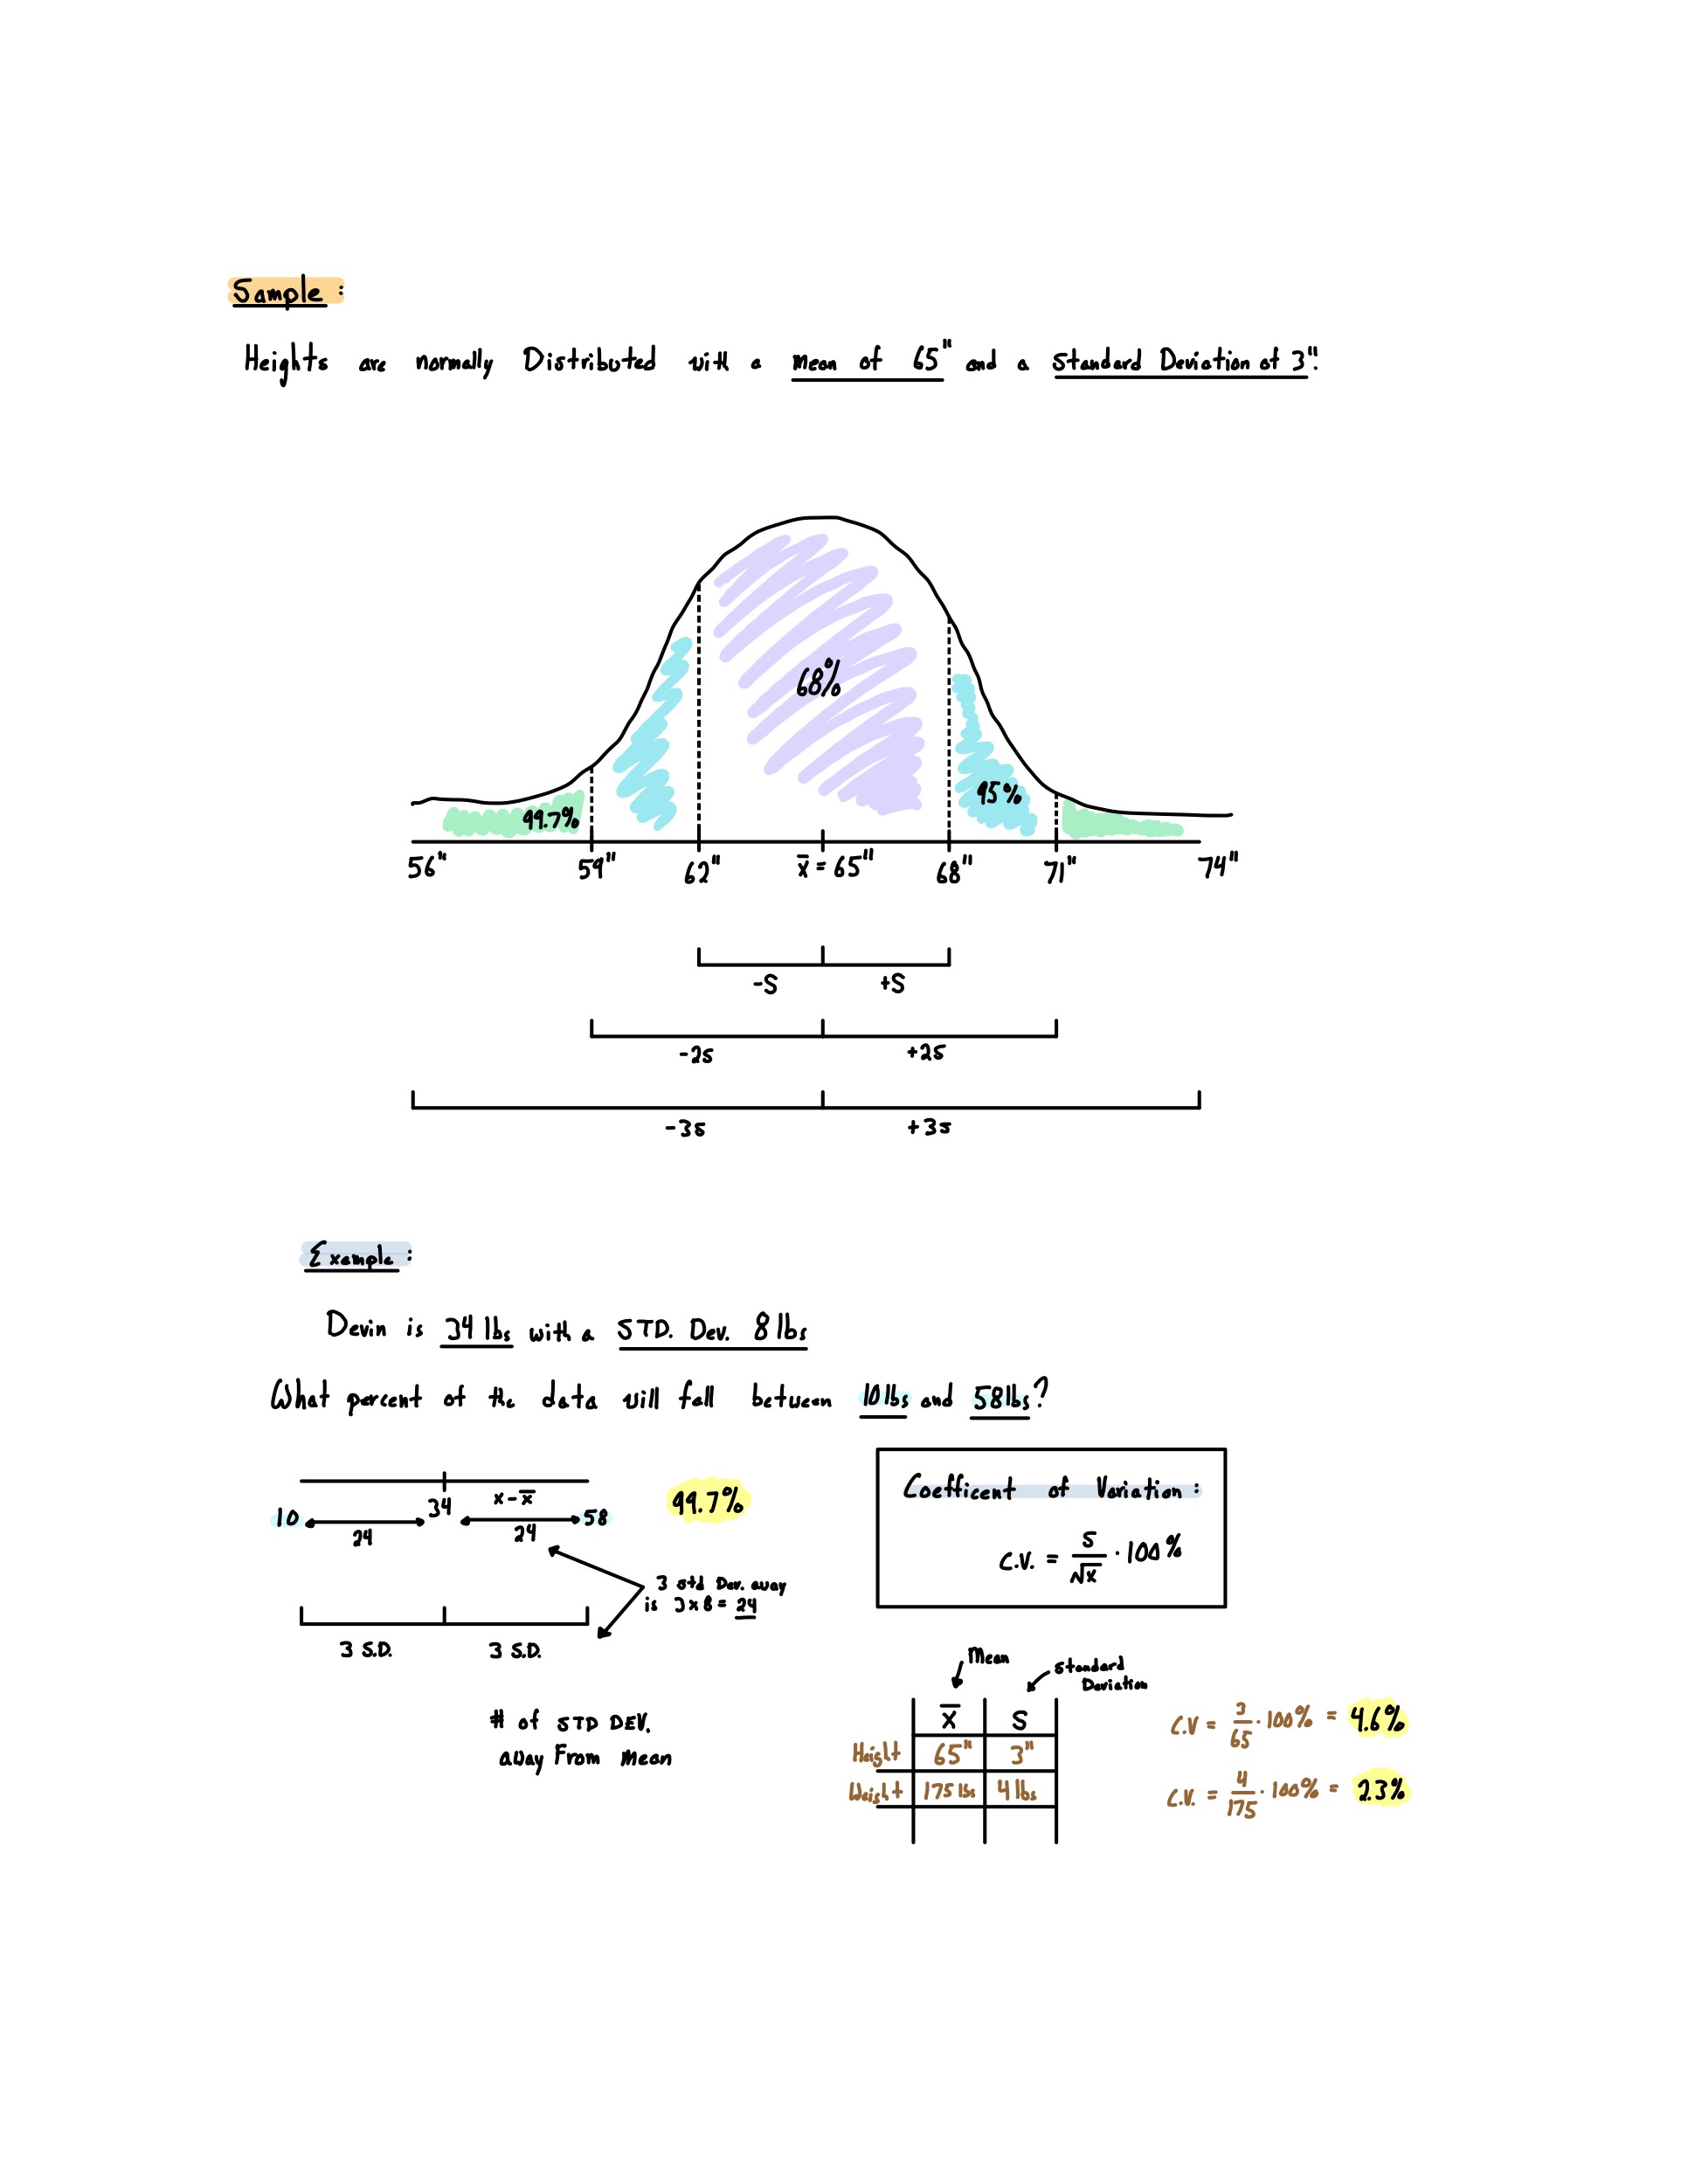 Sample :
Heights are normally Distributed with a mean of 65" and a Standard Deviation of 3".
68%
95%
99.7%
56" 59" 62" x̄ = 65" 68" 71" 74"
-S +S
-2s +2s
-3s +3s
Example :
Devin is 34 lbs with a STD. Dev. 8 lbs
What percent of the data will fall between 10 lbs and 58 lbs?
10 34 x - x̄ 58
24 24
99.7%
3 std Dev. away
is 3 x 8 = 24
3 S.D. 3 S.D.
# of STD DEV.
away From mean
Coefficent of Variation :
C.V. = S/√x · 100%
Mean
Standard
Deviation
x̄ S
Height 65" 3"
Weight 175 lbs 4 lbs
C.V = 3/65 · 100% = 4.6%
C.V. = 4/175 · 100% = 2.3%